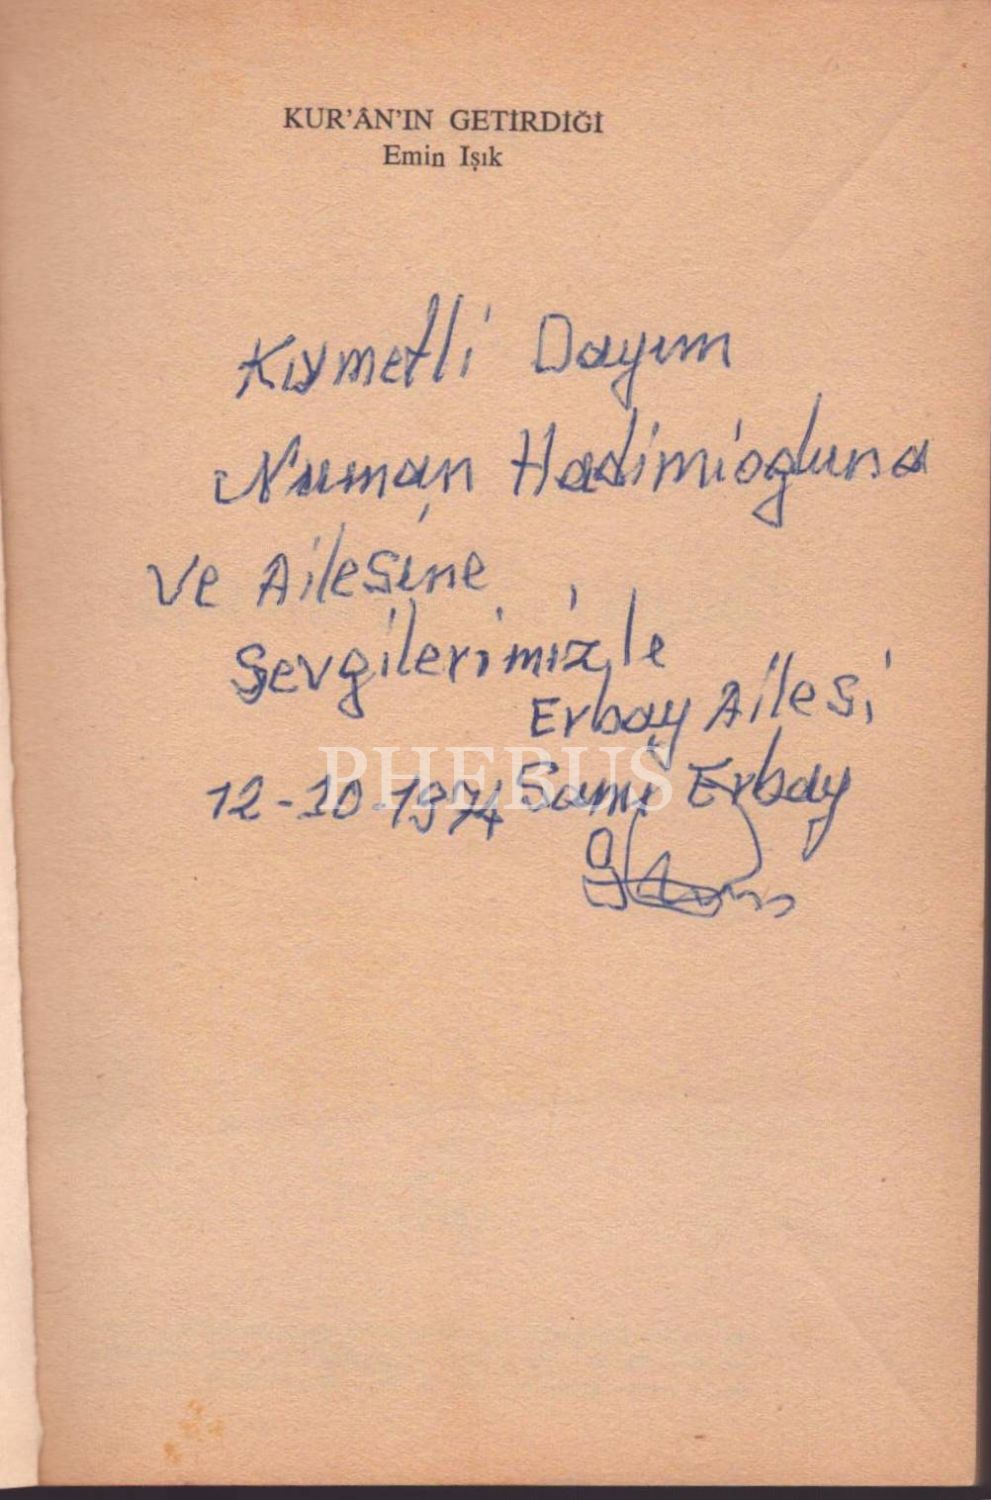 KUR'ÂN'IN GETİRDİĞİ
Emin Işık
Kıymetli Dayım
Numan Hadimiogluna
ve Ailesine
Sevgilerimizle
Erbay Ailesi
PHEBUS
12-10-1974 Sami Erbay